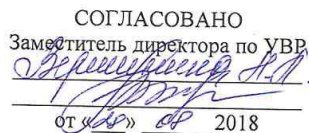 СОГЛАСОВАНО
Заместитель директора по УВР
Н.П.
от «28» 08 2018